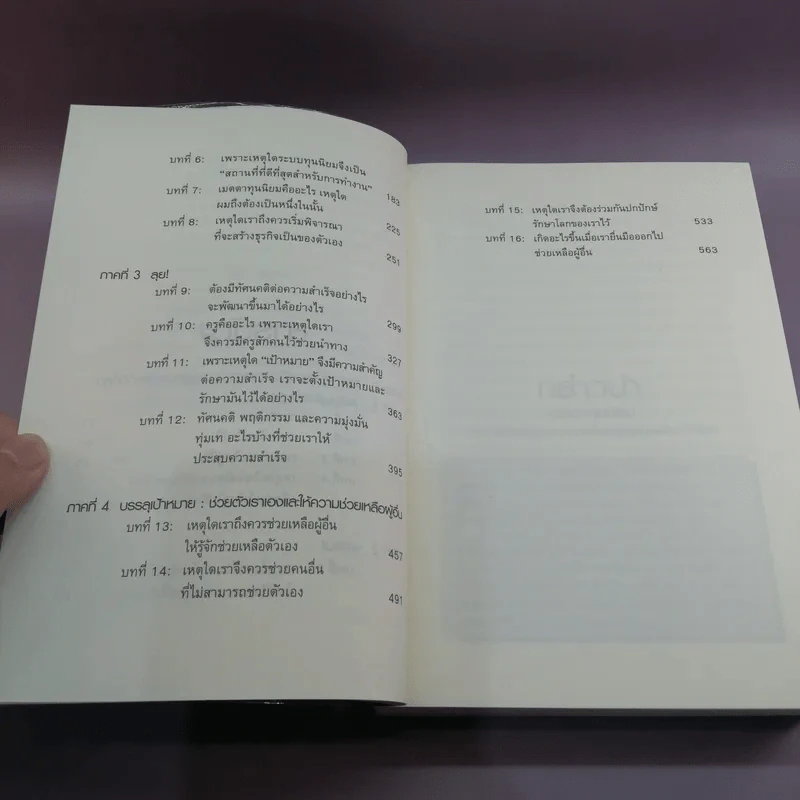 บทที่ 6: เพราะเหตุใดระบบทุนนิยมจึงเป็น
"สถานที่ที่ดีที่สุดสำหรับการทำงาน" 183
บทที่ 7: เมตตาทุนนิยมคืออะไร เหตุใด
ผมถึงต้องเป็นหนึ่งในนั้น 225
บทที่ 8: เหตุใดเราถึงควรเริ่มพิจารณา
ที่จะสร้างธุรกิจเป็นของตัวเอง 251
ภาคที่ 3 ลุย!
บทที่ 9: ต้องมีทัศนคติต่อความสำเร็จอย่างไร
จะพัฒนาขึ้นมาได้อย่างไร 299
บทที่ 10: ครูคืออะไร เพราะเหตุใดเรา
จึงควรมีครูสักคนไว้ช่วยนำทาง 327
บทที่ 11: เพราะเหตุใด "เป้าหมาย" จึงมีความสำคัญ
ต่อความสำเร็จ เราจะตั้งเป้าหมายและ
รักษามันไว้ได้อย่างไร 363
บทที่ 12: ทัศนคติ พฤติกรรม และความมุ่งมั่น
ทุ่มเท อะไรบ้างที่ช่วยเราให้
ประสบความสำเร็จ 395
ภาคที่ 4 บรรลุเป้าหมาย : ช่วยตัวเราเองและให้ความช่วยเหลือผู้อื่น
บทที่ 13: เหตุใดเราถึงควรช่วยเหลือผู้อื่น
ให้รู้จักช่วยเหลือตัวเอง 457
บทที่ 14: เหตุใดเราจึงควรช่วยคนอื่น
ที่ไม่สามารถช่วยตัวเอง 491
บทที่ 15: เหตุใดเราจึงต้องร่วมกันปกปักษ์
รักษาโลกของเราไว้ 533
บทที่ 16: เกิดอะไรขึ้นเมื่อเรายื่นมือออกไป
ช่วยเหลือผู้อื่น 563